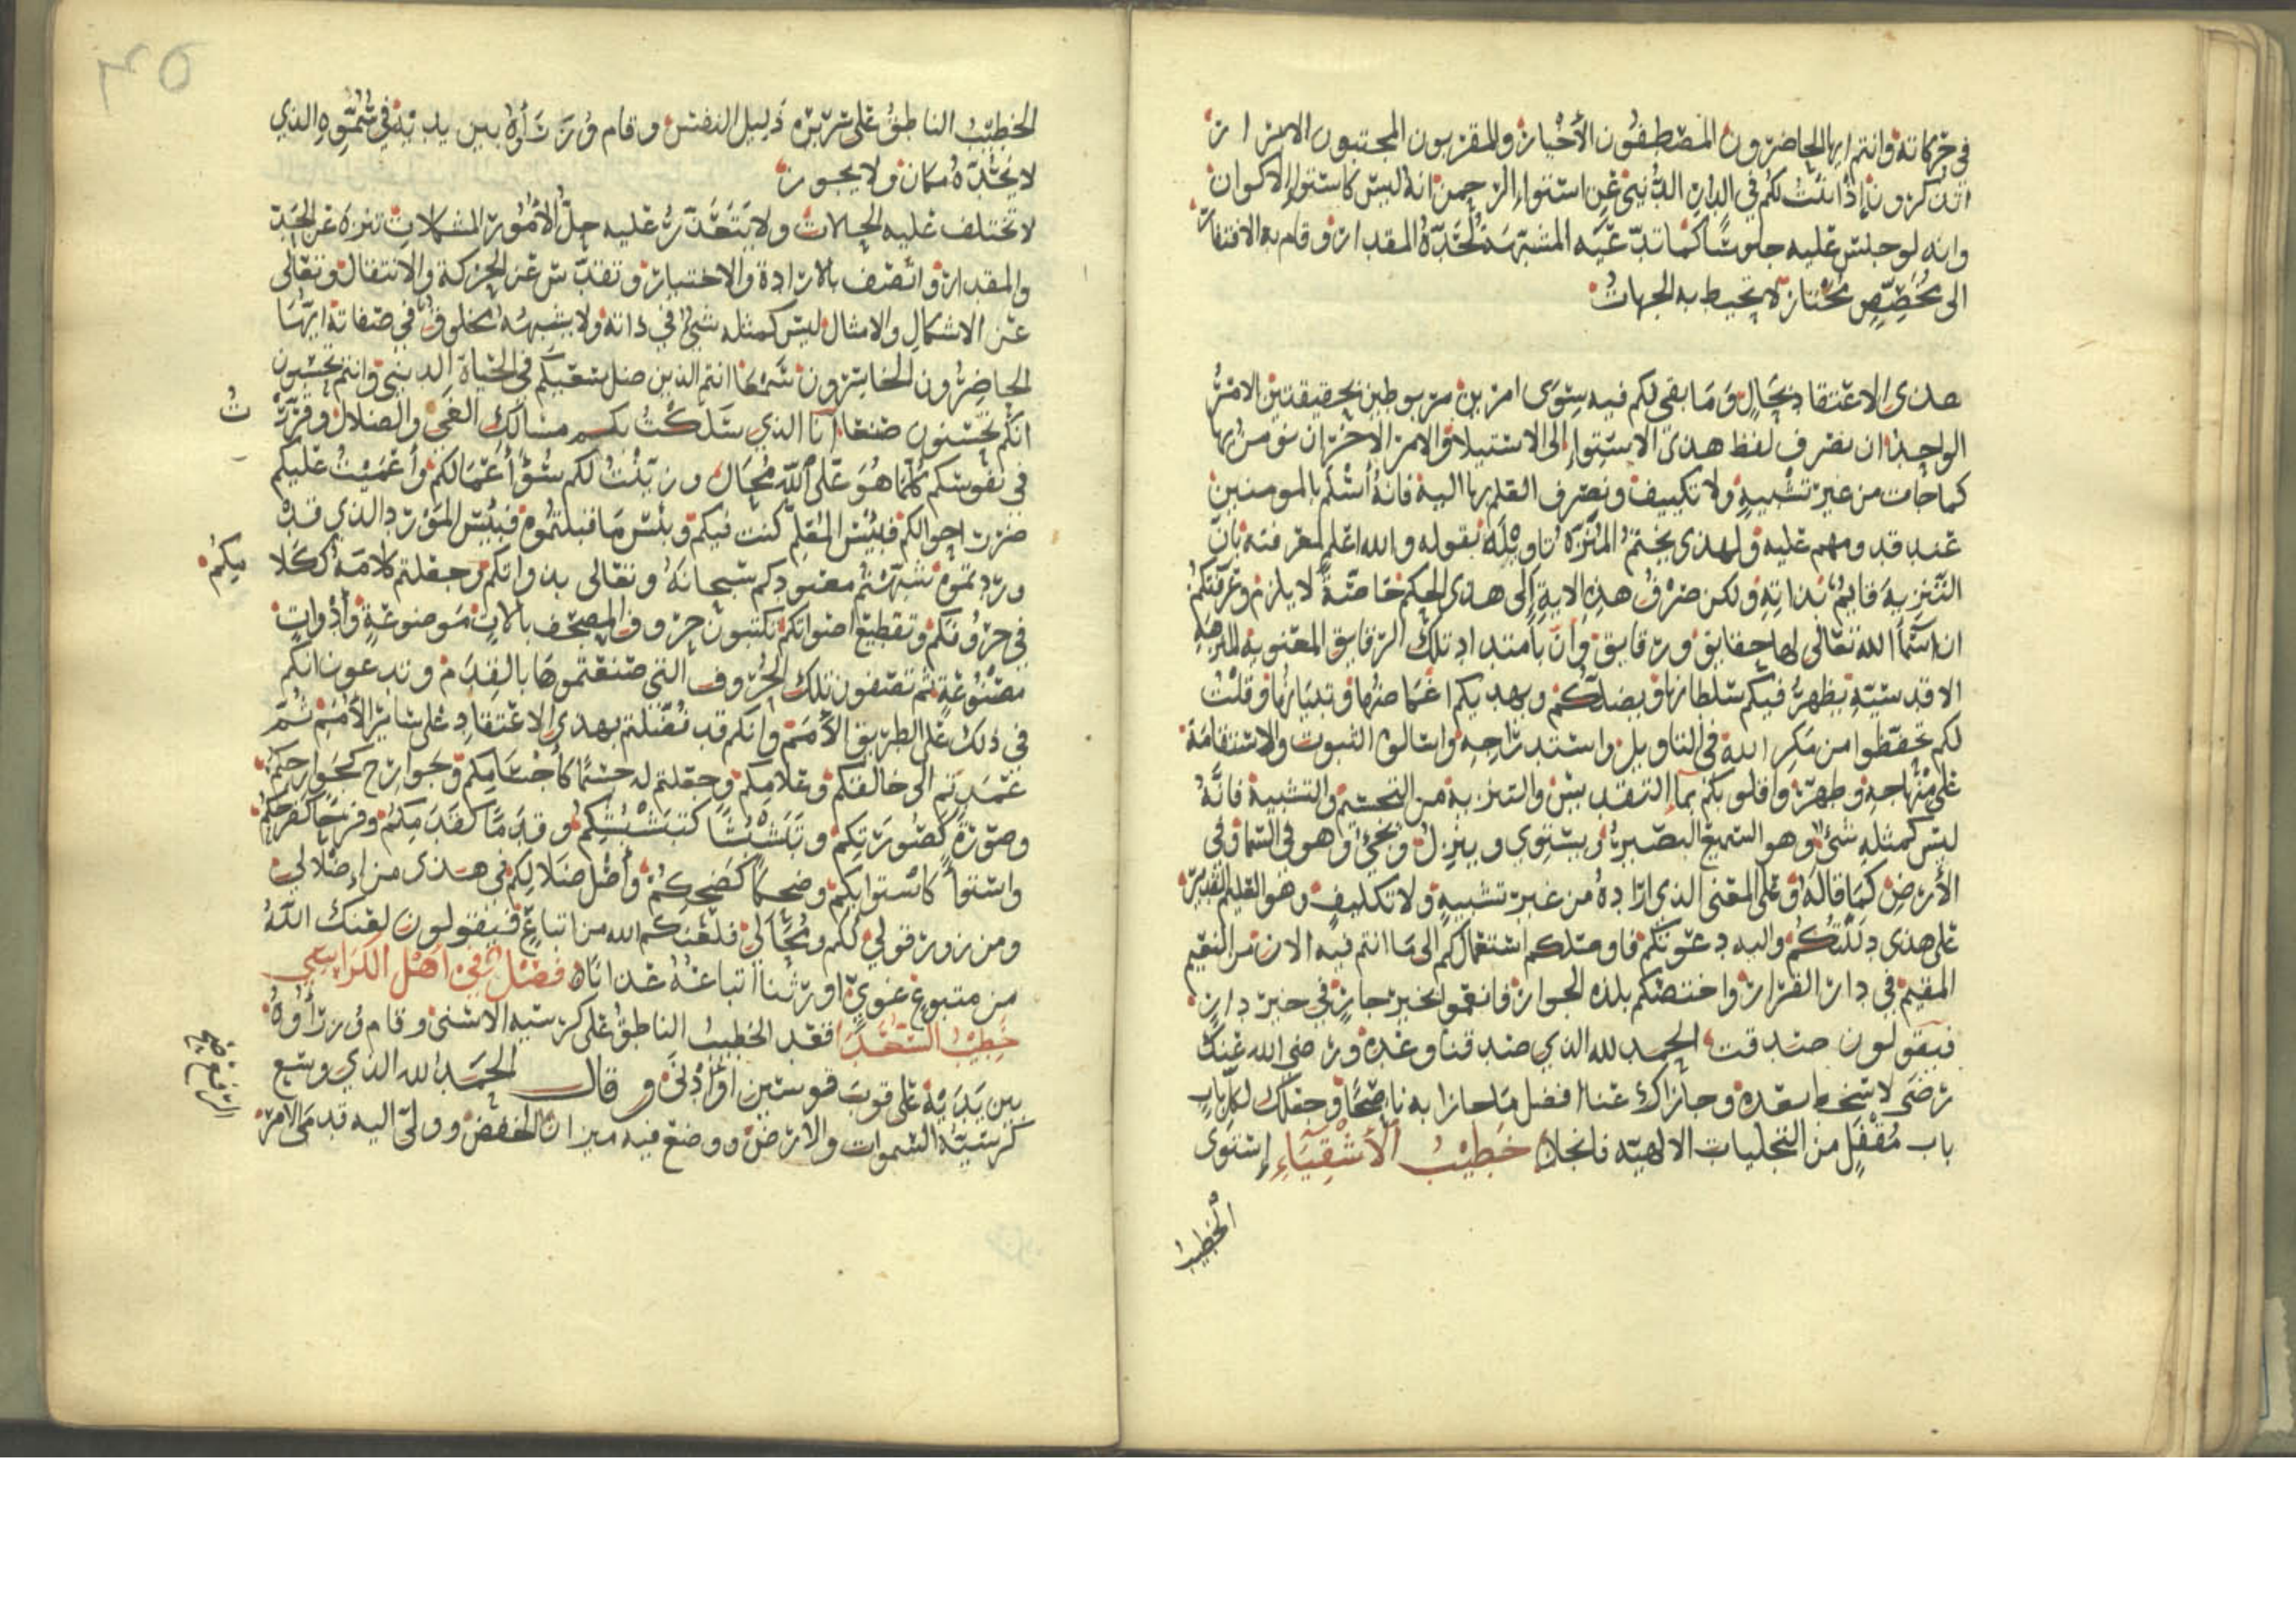 في حركاته وانتم ايها الحاضرون المصطفون الأخيار والمقربون المجتبون الابرار
اتذكرون إذ اثبت لكم في الدار الدنيى عن استواء الرحمن انه ليس كاستواء الاكوان
وانه لو جلس عليه جلوسًا كما تدعيه المشبهة لحدّه المقدار وقام به الافتقار
الى مخصِّصٍ مختار لا تحيط به الجهات
هذى الاعتقاد بحالٍ وما بقى لكم فيه سوى امرين مربوطين بحقيقتين الامر
الواحد ان نصرف لفظ هذى الاستواء الى الاستيلا والامر الاخر ان نومن بها
كما جات من غير تشبيهٍ ولا تكييف ونصرف العلم بها اليه فانه أسلم بالمومنين
عند قدومهم عليه ولهذى يختم المنزّه تاويله بقوله والله اعلم لمعرفته بان
التنزيه قايم بذاته ولكن صرف هذه الاية إلى هذى الحكم خاصّةً لا يلزم وعرفتكم
ان اسمآ الله تعالى لها حقايق ورقايق وان بامتداد تلك الرقايق المعنوية المنزهة
الاقدسيّة يظهر فيكم سلطانها ويضلكم ويهديكم اغماضها وتبيانها وقلت
لكم تحفظوا من مكر الله في التاويل واستدراجه واسالوه الثبوت والاستقامة
على منهاجه وطهروا قلوبكم بمآ التقديس والتنزيه من التجسم والتشبيه فانه
ليس كمثله شئ وهو السميع البصير يستوي وينزل ويجئ وهو في السما وفي
الأرض كما قاله وعلى المعنى الذي اراده من غير تشبيهٍ ولا تكليف وهو العليم القدير
على هذى دللتكم واليه دعوتكم فاوصلكم استعمالكم الى ما انتم فيه الان من النعيم
المقيم في دار القرار واختصكم بلذه الجوار فانعموا بخير جارٍ في خير دارٍ
فيقولون صدقت الحمد لله الذي صدقنا وعده ورضي الله عنك
رضى لا سخط بعده وجازاك عنا افضل ما جازا به ناصحًا وجعلك لكل باب
باب مُقفلٍ من التجليات الالهيّه فانجلا خطيب الأشقيآءِ إستوى
الخطيب
الخطيب الناطق على سريره ذليل النفس وقام وُرَرَأوُهُ بين يديه في سُمُوّه الذي
لا يحدّه مكان ولا يحوز
لا تختلف عليه الحالات ولا يتعذّر عليه حلّ الأمور المشكلات تنزه عن الحدّ
والمقدار واتصف بالارادة والاختيار وتقدّس عن الحركة والانتقال وتعالى
عن الاشكال والامثال ليس كمثله شئ في ذاته ولا يشبهه مخلوق في صفاته ايها
الحاضرون الخاسرون شرعًا انتم الذين ضل سعيكم في الحياة الدنيى وانتم تحسبون
انكم تحسنون صنعا انا الذي سلكت بكم مسالك الغي والضلال وقررت
في نفوسكم كلما هو على الله مُحال وزيّنت لكم سُوٓأَ أعمالكم وأعميت عليكم
ضرر احوالكم فبئس المعلم كنت فيكم وبئس ما قبلتموه فبئس المورد الذي قد
وردتموه شبّهتم معبودكم سبحانه وتعالى بذواتكم وجعلتم كلامه ككلاميكم
في حروفكم وتقطيع اصواتكم تكتبون حروف المصحف بالاتٍ موضوعةٍ وأدواتٍ
مصنوعةٍ ثم تصفون تلك الحروف التي صنعتموها بالقدم وتدعون انكم
في ذلك على الطريق الأمم وانكم قد فضلتم بهذى الاعتقاد على سائر الأمم ثم
عمدتم الى خالقكم وعلامكم وجعلتم له جسمًا كأجسامكم وجوارح كجوارحكم
وصورةً كصورتكم وتبشبشًا كتبشبشكم وقدمًا كقدمكم وفرحًا كفرحكم
واستوآً كاستوايكم وضحكًا كضحككم وأصل ضلالكم في هذى من إضلالي
ومن زور قولي لكم ومحالي فلعنكم الله من اتباعٍ فيقولون لعنك اللهُ
من متبوع غوي اورثنا اتباعه عذاباه فصل في اهل الكراسي
خطيب السعدا فقعد الخطيب الناطق على كرسيه الاسنى وقام وُررَأوُهُ
بين يديه على قوب قوسين أو أدنى وقال الحمد لله الذي وسع
كرسيّه السموات والارض ووضع فيه ميزان الخفض وولى اليه قدمى الامر